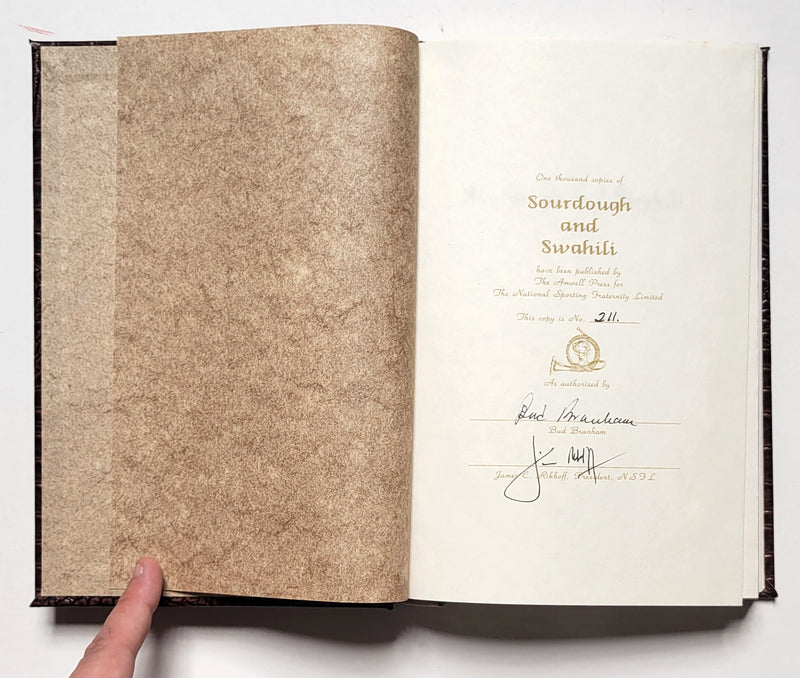 One thousand copies of
Sourdough
and
Swahili
have been published by
The Amwell Press for
The National Sporting Fraternity Limited
This copy is No. 211.
As authorized by
Bud Branham
Bud Branham
James C. Rikhoff, President, NSFL